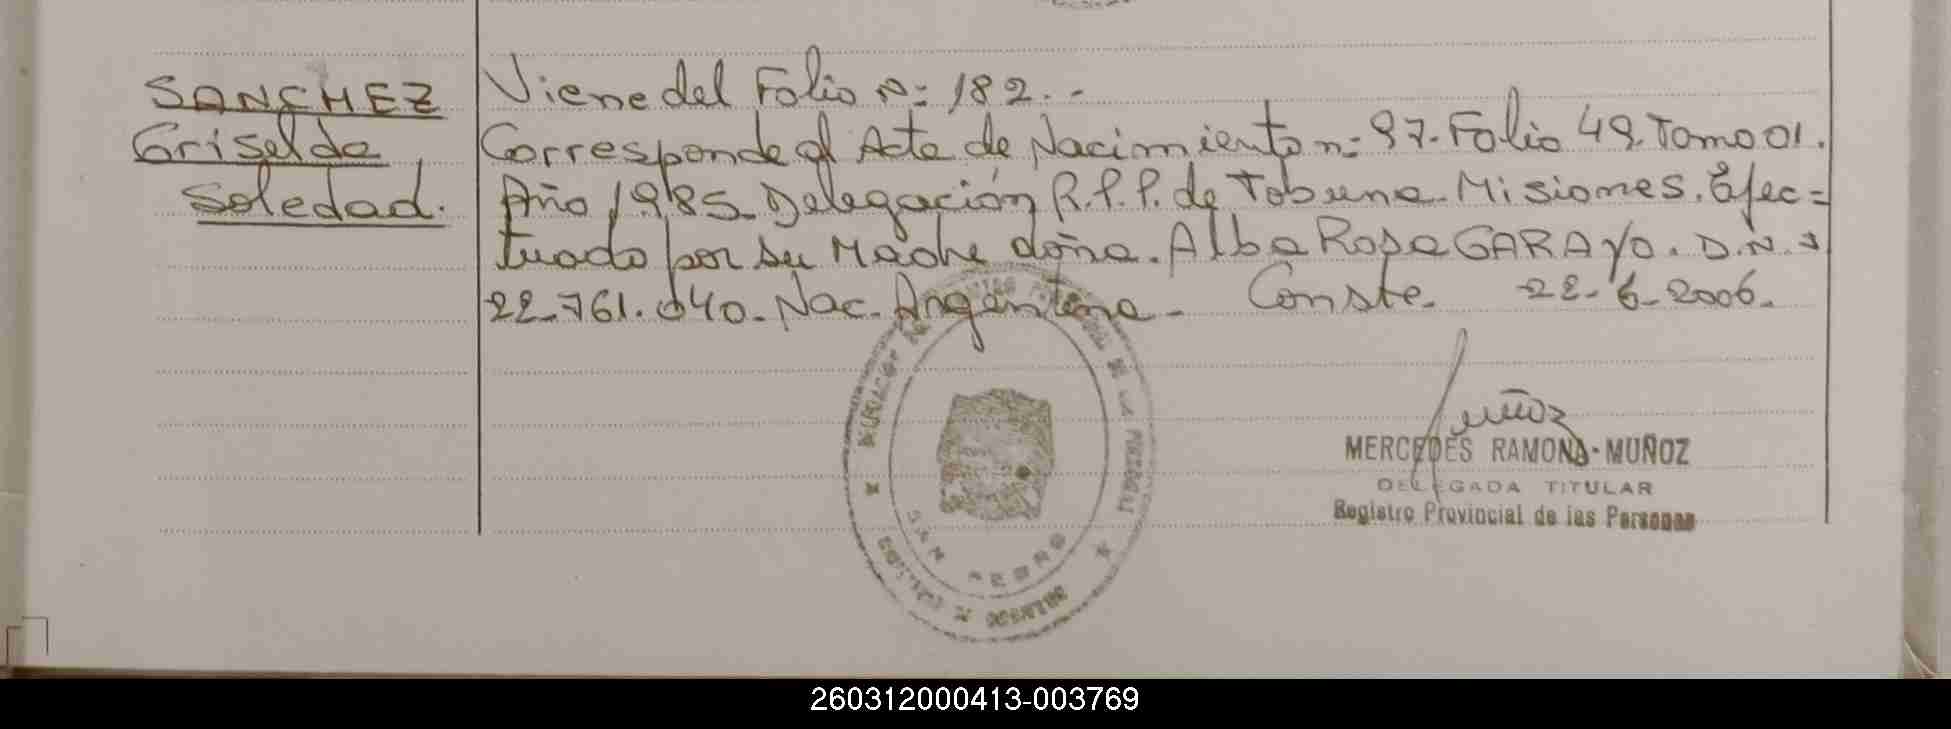 SANCHEZ
Griselda
Soledad.
Viene del Folio n: 182. -
Corresponde al Acta de Nacimiento n: 97. Folio 49. Tomo 01.
Año 1985. Delegación R.P.P. de Tobuna. Misiones. Efec=
tuado por su Madre doña. Alba Rosa GARAYO. D.N.I
22.761.040. Nac. Argentina. Conste. 22-6-2006.
Muñoz
MERCEDES RAMONA MUÑOZ
DELEGADA TITULAR
Registro Provincial de las Personas
SAN PEDRO
260312000413-003769